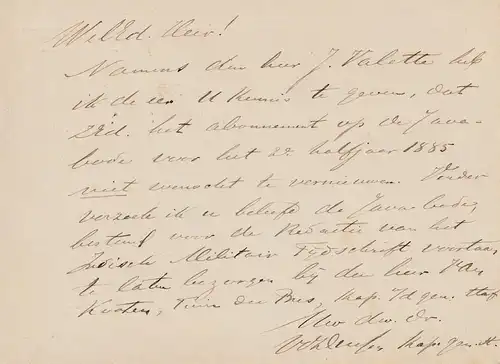 WelEd. Heer!
Namens den heer J. Valette heb
ik de eer U kennis te geven, dat
ZEd. het abonnement op de Java-
bode voor het 2e halfjaar 1885
niet wenscht te vernieuwen. Verder
verzoek ik u beleefd de Javabode,
bestemd voor de Redactie van het
Indisch Militair Tijdschrift voortaan
te laten bezorgen bij den heer Van
Kesteren, Tuin du Bus, Kap. Id gen. Staf
Uw dw. dr.
Kap. gen. st.